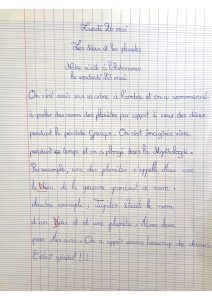 Lundi 26 mai
Les dieux et les planètes
Notre visite à l'Astronome
le vendredi 23 mai
On s'est assis sur ... à l'ombre et on a commencé
à parler des noms des planètes par apport à ceux des dieux
pendant la période Grecque. On s'est imaginés vivre
pendant ce temps et on a plongé dans la Mythologie.
Par exemple, une des planètes s'appelle Mars car
le Dieu de la guerre portait ce nom,
deuxième exemple, Jupiter était le nom
d'un Dieu et d'une planète,
pour des ... On a appris encore beaucoup de choses.
C'était génial !!!